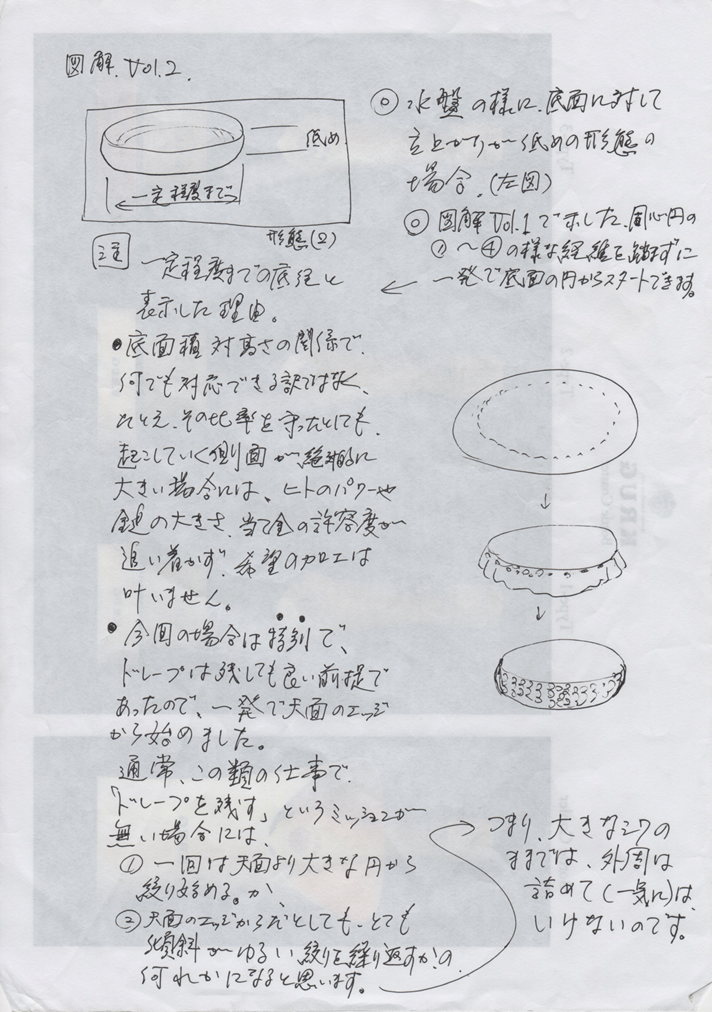 図解.Vol.2.
低め
一定程度まで
形態(2)
◎ 水盤の様に、底面に対して
立上がりが低めの形態の
場合。(左図)
◎ 図解Vol.1で示した、同心円の
①〜④の様な経緯を踏まずに
一発で底面の円からスタートできます。
注
一定程度までの底径と
表示した理由。
●底面積対高さの関係で、
何でも対応できる訳ではなく、
たとえ、その比率を守ったとしても、
起こしていく側面が、絶対的に
大きい場合には、ヒトのパワーや
金鎚の大きさ、当て金の許容度が
追い着かず、希望の加工は
叶いません。
●今回の場合は特別で、
ドレープは残しても良い前提で
あったので、一発で天面のエッジ
から始めました。
通常、この類の仕事で、
「ドレープを残す」というミッションが
無い場合には、
①一回は天面より大きな円から
絞り始める。か、
②天面のエッジからだとしても、とても
傾斜がゆるい絞りを繰り返すか?の
何れかになると思います。
つまり、大きなシワの
ままでは、外周は
詰めて(一気に)は、
いけないのです。
KRUG